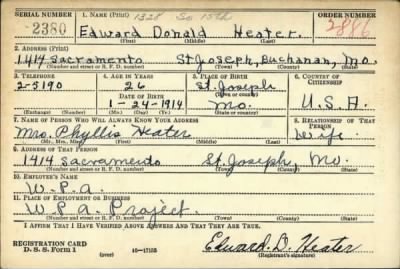 SERIAL NUMBER 1. NAME (Print) 1328 So 15th ORDER NUMBER
2380 Edward Donald Heater. 2886
(First) (Middle) (Last)
2. ADDRESS (Print)
1414 Sacramento St Joseph, Buchanan, Mo.
(Number and street or R. F. D. number) (Town) (County) (State)
3. TELEPHONE 4. AGE IN YEARS 5. PLACE OF BIRTH 6. COUNTRY OF CITIZENSHIP
2-5190 26 St Joseph
DATE OF BIRTH (Town or county)
1-24-1914 Mo. U.S.A.
(Exchange) (Number) (Mo.) (Day) (Yr.) (State or country)
7. NAME OF PERSON WHO WILL ALWAYS KNOW YOUR ADDRESS 8. RELATIONSHIP OF THAT PERSON
Mrs. Phyllis Heater wife.
(Mr., Mrs., Miss) (First) (Middle) (Last)
9. ADDRESS OF THAT PERSON
1414 Sacramento St. Joseph, Mo.
(Number and street or R. F. D. number) (Town) (County) (State)
10. EMPLOYER'S NAME
W.P.A.
11. PLACE OF EMPLOYMENT OR BUSINESS
W.P.A. Project.
(Number and street or R. F. D. number) (Town) (County) (State)
I AFFIRM THAT I HAVE VERIFIED ABOVE ANSWERS AND THAT THEY ARE TRUE.
REGISTRATION CARD
D. S. S. Form 1 (over) 16-17105 Edward D. Heater
(Registrant's signature)